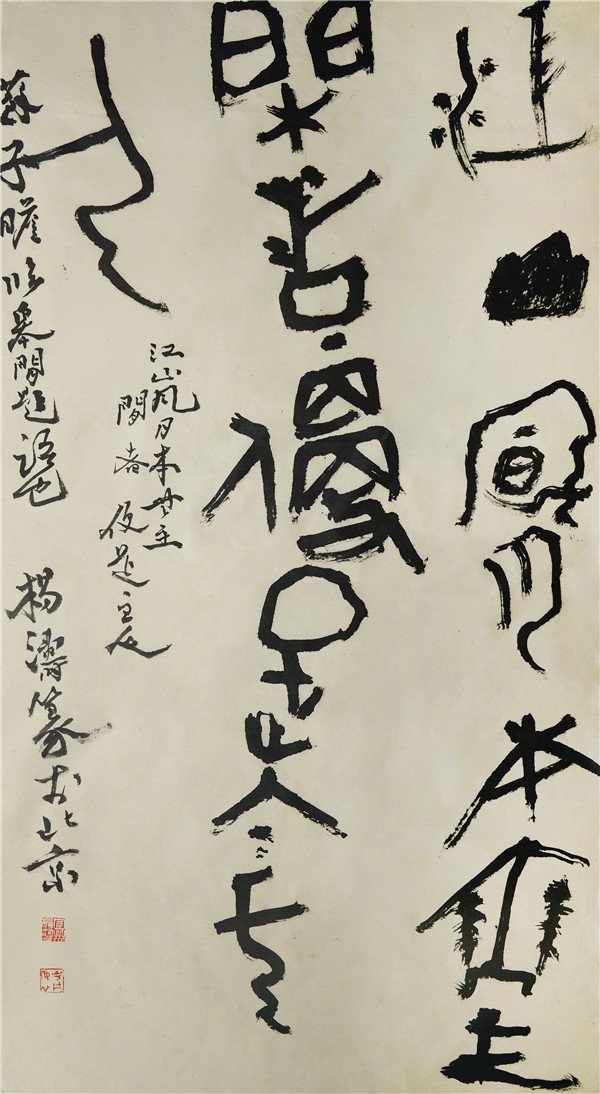 江山風月本無主
閒者便是
人
江山風月本無主
閒者便是主人
蘇子瞻臨皋閒題語也 楊濤篆於北京